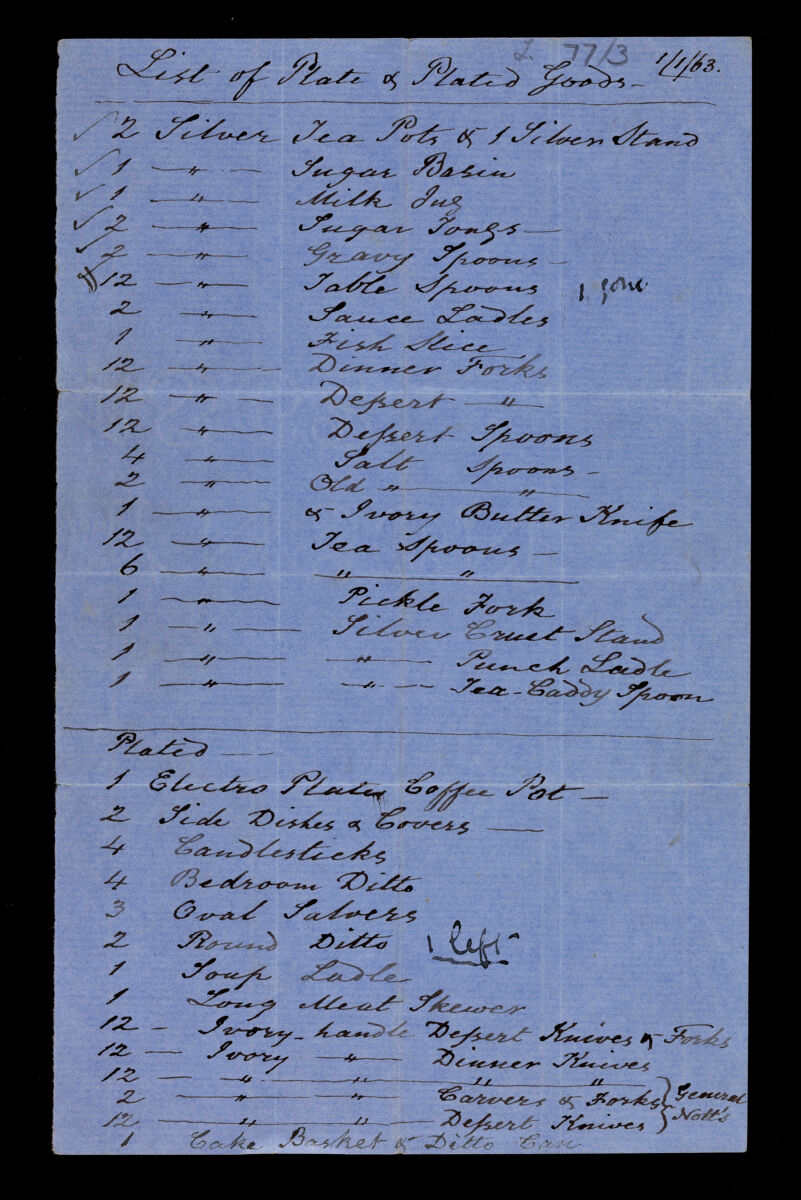 L 77/3 1/1/63.
List of Plate & Plated Goods —
✓ 2 Silver Tea Pots & 1 Silver Stand
✓ 1 — " — Sugar Basin
✓ 1 — " — Milk Jug
✓ 2 — " — Sugar Tongs —
✓ 2 — " — Gravy Spoons —
12 — " — Table Spoons 1 gone
2 — " — Sauce Ladles
1 — " — Fish Slice
12 — " — Dinner Forks
12 — " — Deſsert — " —
12 — " — Deſsert Spoons
4 — " — Salt Spoons —
2 — " — Old " — " —
1 — " — & Ivory Butter Knife
12 — " — Tea Spoons —
6 — " — " — " —
1 — " — Pickle Fork
1 — " — Silver Cruet Stand
1 — " — — " — Punch Ladle
1 — " — — " — Tea-Caddy Spoon
Plated —
1 Electro Plate Coffee Pot —
2 Side Dishes & Covers —
4 Candlesticks
4 Bedroom Ditto
3 Oval Salvers
2 Round Ditto 1 left
1 Soup Ladle
1 Long Meat Skewer
12 — Ivory-handle Deſsert Knives & Forks
12 — Ivory — " — Dinner Knives
12 — " — " — " — " —
2 — " — " — Carvers & Forks } General
12 — " — " — Deſsert Knives } Nott's
1 Cake Basket & Ditto Can